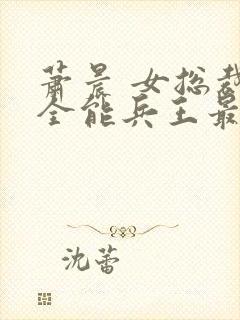 萧晨 女总裁
全能兵王最
沈蕾